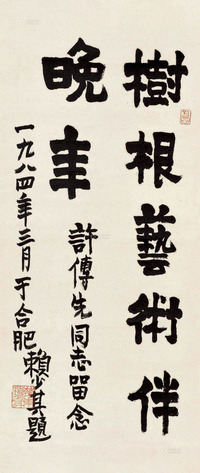 樹根藝術伴
晚年
許傳先同志留念
一九八四年三月于合肥
賴少其題